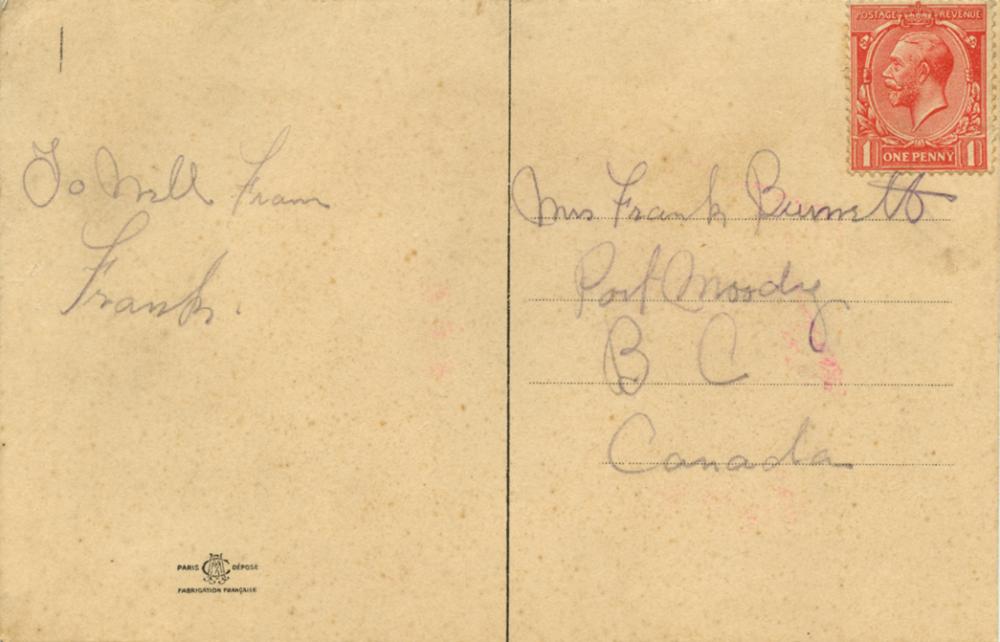 To Will From
Frank.
PARIS DÉPOSÉ
FABRICATION FRANÇAISE
POSTAGE REVENUE
1 ONE PENNY 1
Mrs Frank Burnett
Port Moody
B C
Canada